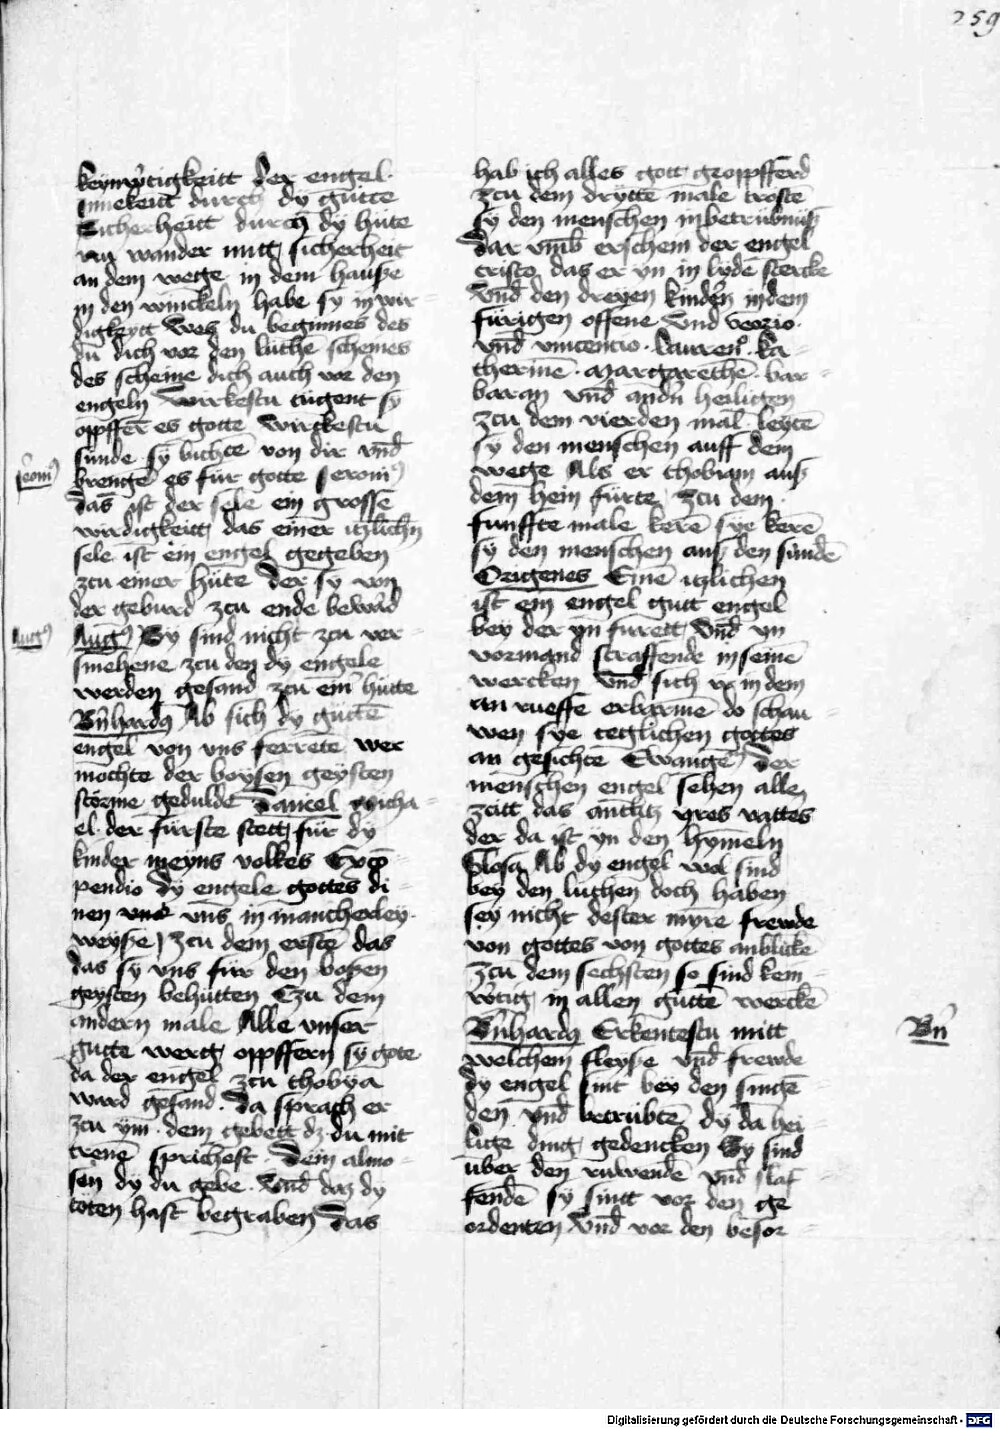 259
keynwͤrtigkeitt der engel
Innekeit durch dy gutte
Sicherheitt durch dy hute
nu wander mitt sicherheit
an dem wege in dem hauße
in den winckeln habe sy in wir-
digkeytt Wes du beginnes des
du dich vor den luthe schemes
des scheme dich auch vor den
engeln Wirkestu tugent sy
oppffern es gotte Wirckestu
sunde sy bichte von dir vnd
brenge es für gotte Jeronius
Jeronius
Das ist der sele ein grosse
wirdigkeitt das einer itzlichn
sele ist ein engel gegeben
zcu einer hute Der sy von
der geburd zcu ende bewart
Augus
Augus Sy sind nicht zcu ver-
smehene zcu den dy engele
werden gesand zcu ein hutte
Bernhardus Ab sich dy gutte
engel von vns ferrete wer
mochte der boysen geysten
störme gedulde Daniel Micha-
el der fürste stett für dy
kinder meyns volkes Exco-
pendio dy engele gottes di-
nen vns in mancherley
weyße zcu dem erste das
das sy vns für den boßen
geysten behütten Czu dem
andern male Alle vnser
gutte werg oppffern sy gote
da der engel zcu thobya
ward gesand Da sprach er
zcu ym dem gebett dz du mit
trene sprichest Dem almo-
sen dy du gebe Vnd daz dy
toten hast begraben Das
hab ich alles gott geoppfferd
zcu dem drytte male troste
sy den menschen in betrubniß
Dar vmb erschein der engel
cristo das er yn in lyde stercke
Vnd den dreyen kindern in dem
fürigen offene Vnd georio
Vnd vincencio Lauren ka-
therine Margarethe bar-
baran vnd andn heiligen
zcu dem vierden mal leyte
sy den menschen auff dem
wege Als er thobiam auß
dem hein fürte zcu dem
funffte male kere sye kere
sy den menschen auß den sunde
Origenes Eine itzlichen
ist ein engel gutt engel
bey der yn furett Vnd yn
vormand straffende in seine
wercken Vnd sich in dem
an rueffe erbarme do schau-
wen sye teglichen gottes
an gesichte Ewange Der
menschen engel sehen alle
zcitt das antlitz yres vattes
der da ist yn den hymeln
Glosa Ab dy engel wol sind
bey den luthen doch haben
sey nicht dester myre frewde
von gottes von gottes anblicke
Zcu dem sechsten so sind kein-
wͤrtig in allen gutte wercke
Bernhardus Erkentestu mitt
Bern
welchem fleyße vnd frewde
dy engel sint bey den singe
den vnd betrubte dy da hei-
lige ding gedencken Sy sind
uber den ruwende vnd slaf-
fende sy sintt vor den ge
ordenten Vnd vor den besor-
Digitalisierung gefördert durch die Deutsche Forschungsgemeinschaft - DFG